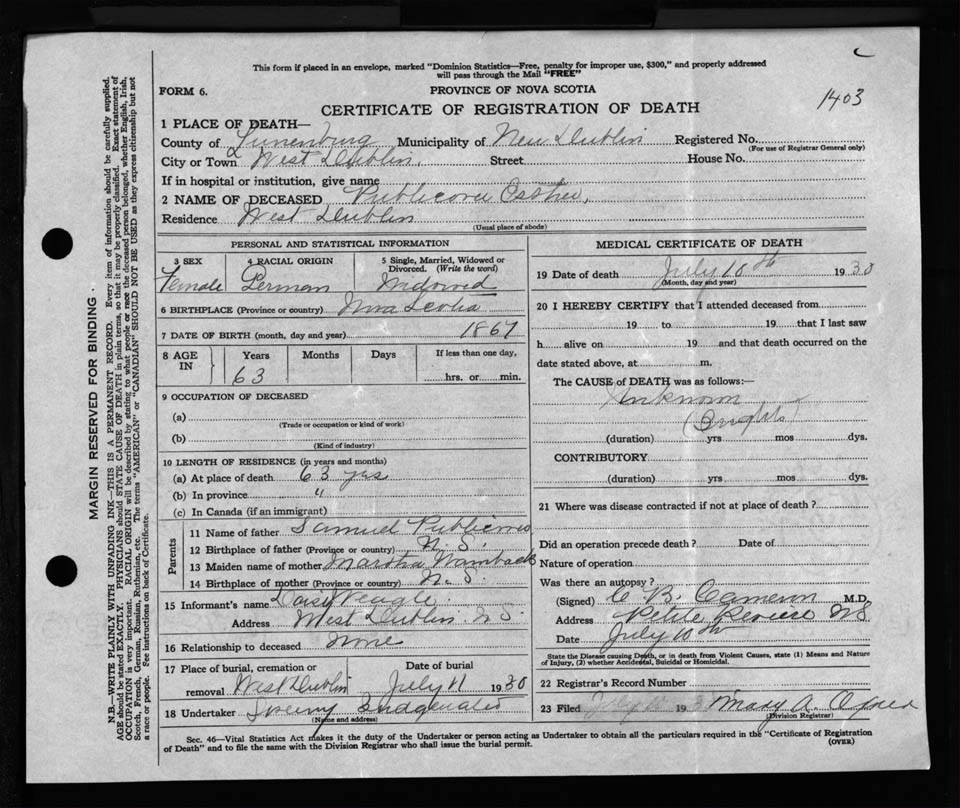 This form if placed in an envelope, marked "Dominion Statistics—Free, penalty for improper use, $300," and properly addressed
will pass through the Mail "FREE"
FORM 6.
PROVINCE OF NOVA SCOTIA
1403
CERTIFICATE OF REGISTRATION OF DEATH
1 PLACE OF DEATH—
County of Lunenburg Municipality of New Dublin Registered No.
(For use of Registrar General only)
City or Town West Dublin, Street House No.
If in hospital or institution, give name
2 NAME OF DECEASED Publicover Esther,
Residence West Dublin
(Usual place of abode)
PERSONAL AND STATISTICAL INFORMATION
3 SEX 4 RACIAL ORIGIN 5 Single, Married, Widowed or Divorced. (Write the word)
Female German Widowed
6 BIRTHPLACE (Province or country) Nova Scotia
7 DATE OF BIRTH (month, day and year) 1867
8 AGE IN Years Months Days If less than one day,
63 hrs. or min.
9 OCCUPATION OF DECEASED
(a)
(Trade or occupation or kind of work)
(b)
(Kind of industry)
10 LENGTH OF RESIDENCE (in years and months)
(a) At place of death 63 yrs
(b) In province "
(c) In Canada (if an immigrant)
Parents
11 Name of father Samuel Publicover
12 Birthplace of father (Province or country) N.S.
13 Maiden name of mother Martha Wamback
14 Birthplace of mother (Province or country) N.S.
15 Informant's name Daisy
Address West Dublin N.S.
16 Relationship to deceased None
17 Place of burial, cremation or removal West Dublin Date of burial July 11 1930
18 Undertaker
(Name and address)
MEDICAL CERTIFICATE OF DEATH
19 Date of death July 10th 1930
(Month, day and year)
20 I HEREBY CERTIFY that I attended deceased from
19 to 19 that I last saw
h alive on 19 and that death occurred on the
date stated above, at m.
The CAUSE of DEATH was as follows:—
Unknown
(Brights)
(duration) yrs mos dys.
CONTRIBUTORY
(duration) yrs mos dys.
21 Where was disease contracted if not at place of death?
Did an operation precede death? Date of
Nature of operation
Was there an autopsy?
(Signed) C. B. Cameron M.D.
Address Petite Riviere NS
Date July 10th
State the Disease causing Death, or in death from Violent Causes, state (1) Means and Nature
of Injury, (2) whether Accidental, Suicidal or Homicidal.
22 Registrar's Record Number
23 Filed July 19 Mary A.
(Division Registrar)
Sec. 46—Vital Statistics Act makes it the duty of the Undertaker or person acting as Undertaker to obtain all the particulars required in the "Certificate of Registration
of Death" and to file the same with the Division Registrar who shall issue the burial permit.
(OVER)
MARGIN RESERVED FOR BINDING
N.B.—WRITE PLAINLY WITH UNFADING INK—THIS IS A PERMANENT RECORD. Every item of information should be carefully supplied.
AGE should be stated EXACTLY. PHYSICIANS should STATE CAUSE OF DEATH in plain terms, so that it may be properly classified. Exact statement of
OCCUPATION is very important. RACIAL ORIGIN will be described by stating to what people or race the deceased person belonged, whether English, Irish,
Scotch, French, German, Russian, Ruthenian, etc. The terms "AMERICAN" or "CANADIAN" SHOULD NOT BE USED as they express citizenship but not
a race or people. See instructions on back of Certificate.